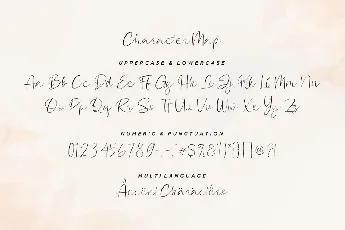 Character Map
UPPERCASE & LOWERCASE
Aa Bb Cc Dd Ee Ff Gg Hh Ii Jj Kk Ll Mm Nn
Oo Pp Qq Rr Ss Tt Uu Vv Ww Xx Yy Zz
NUMERIC & PUNCTUATION
0123456789
MULTI LANGUAGE